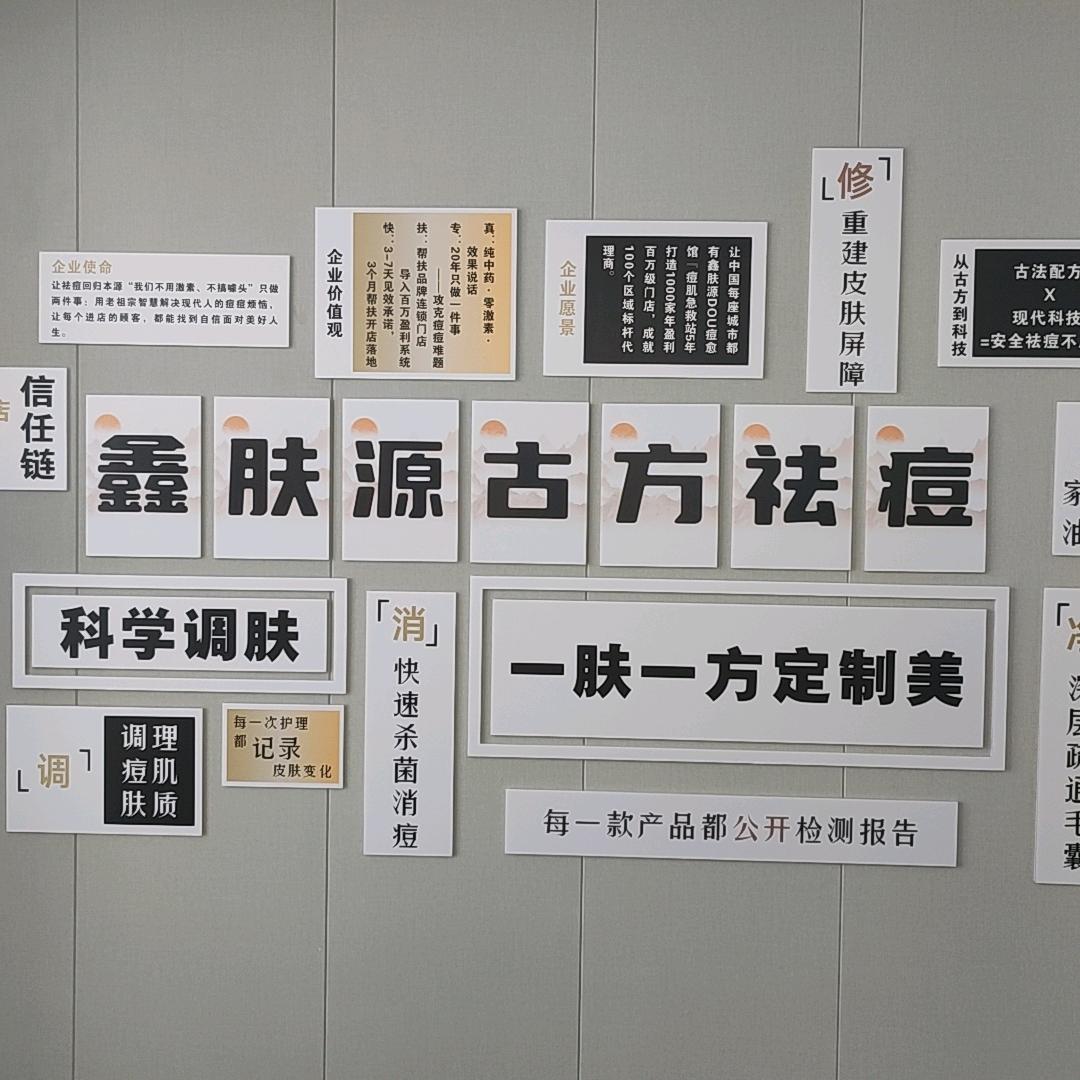 企业使命
让祛痘回归本源“我们不用激素、不搞噱头”只做
两件事：用老祖宗智慧解决现代人的痘痘烦恼，
让每个进店的顾客，都能找到自信面对美好人
生。
企业价值观
真：纯中药·零激素·
效果说话
专：20年只做一件事
——攻克痘痘难题
扶：帮扶品牌连锁门店
导入百万盈利系统
快：3-7天见效承诺，
3个月帮扶开店落地
企业愿景
让中国每座城市都
有鑫肤源DOU痘愈
馆「痘肌急救站5年
打造1000家年盈利
百万级门店，成就
100个区域标杆代
理商。
「修」
重建皮肤屏障
从古方到科技
古法配方
X
现代科技
=安全祛痘不
店
信任链
鑫肤源古方祛痘
家
油
科学调肤
「消」
快速杀菌消痘
一肤一方定制美
「净
深层疏通毛囊
「调」
调理
痘肌
肤质
每一次护理
都 记录
皮肤变化
每一款产品都公开检测报告